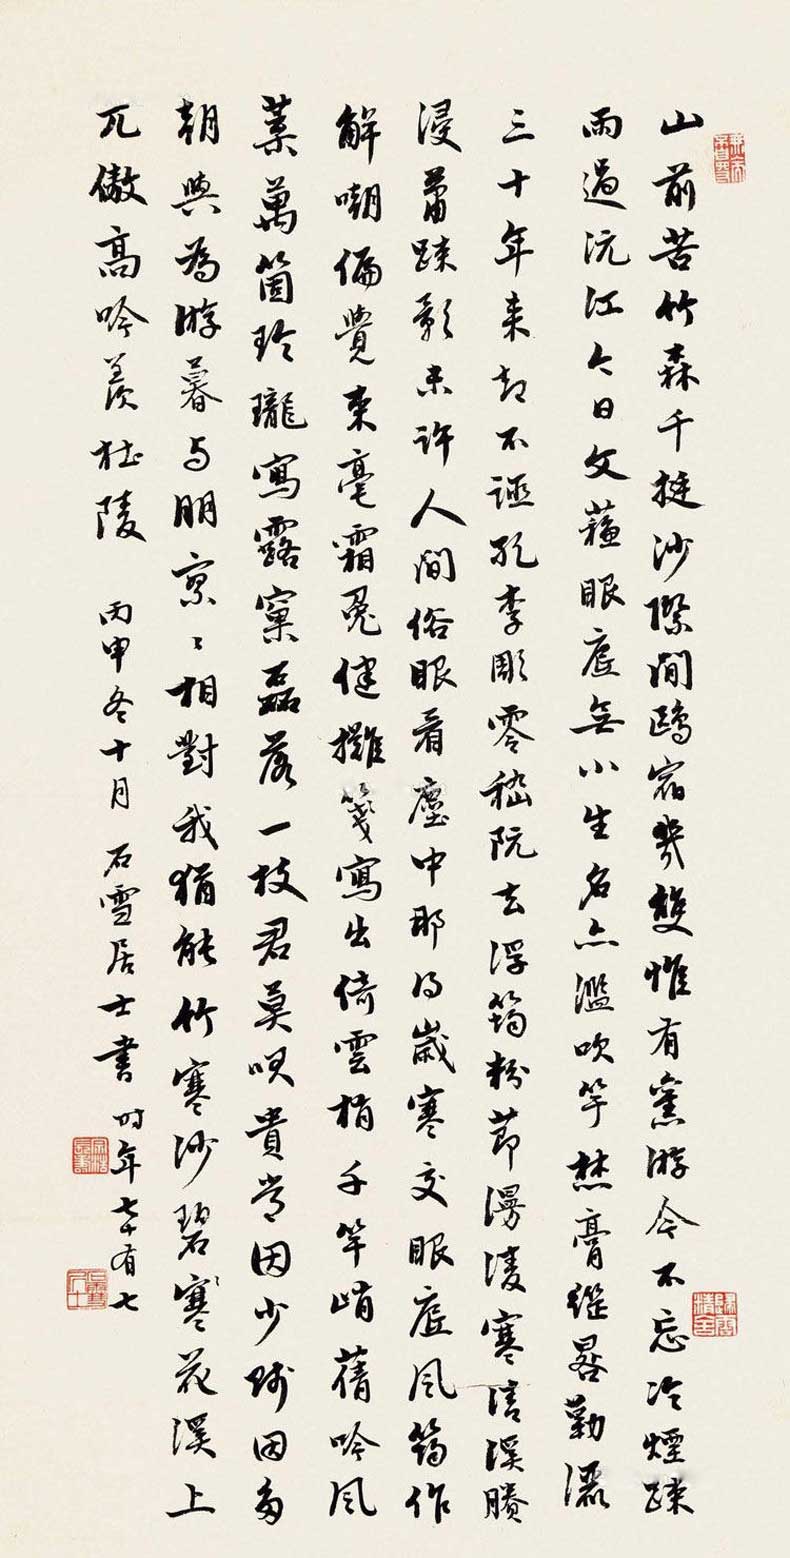 山前苦竹森千挺沙際間鷗宿幾雙惟有舊游今不忘冷煙踈
雨過沅江今日文蘓眼底無小生名亦濫吹竽焚膏繼晷勤灑
三十年来却不誣孔李彫零嵇阮去浮筠粉節漫凌寒清溪賸
浸蕭踈影未許人間俗眼看塵中那得歲寒交眼底風筠作
解嘲偏覺束毫霜兔健攤箋寫出倚雲梢千竿峭蒨吟風
葉萬箇玲瓏寫露窠磊落一枝君莫哂貴常因少賤因多
朝與為游暮与朋寥々相對我猶能竹寒沙碧寒花溪上
兀傲高吟羨杜陵 丙申冬十月 石雪居士書 时年七十有七